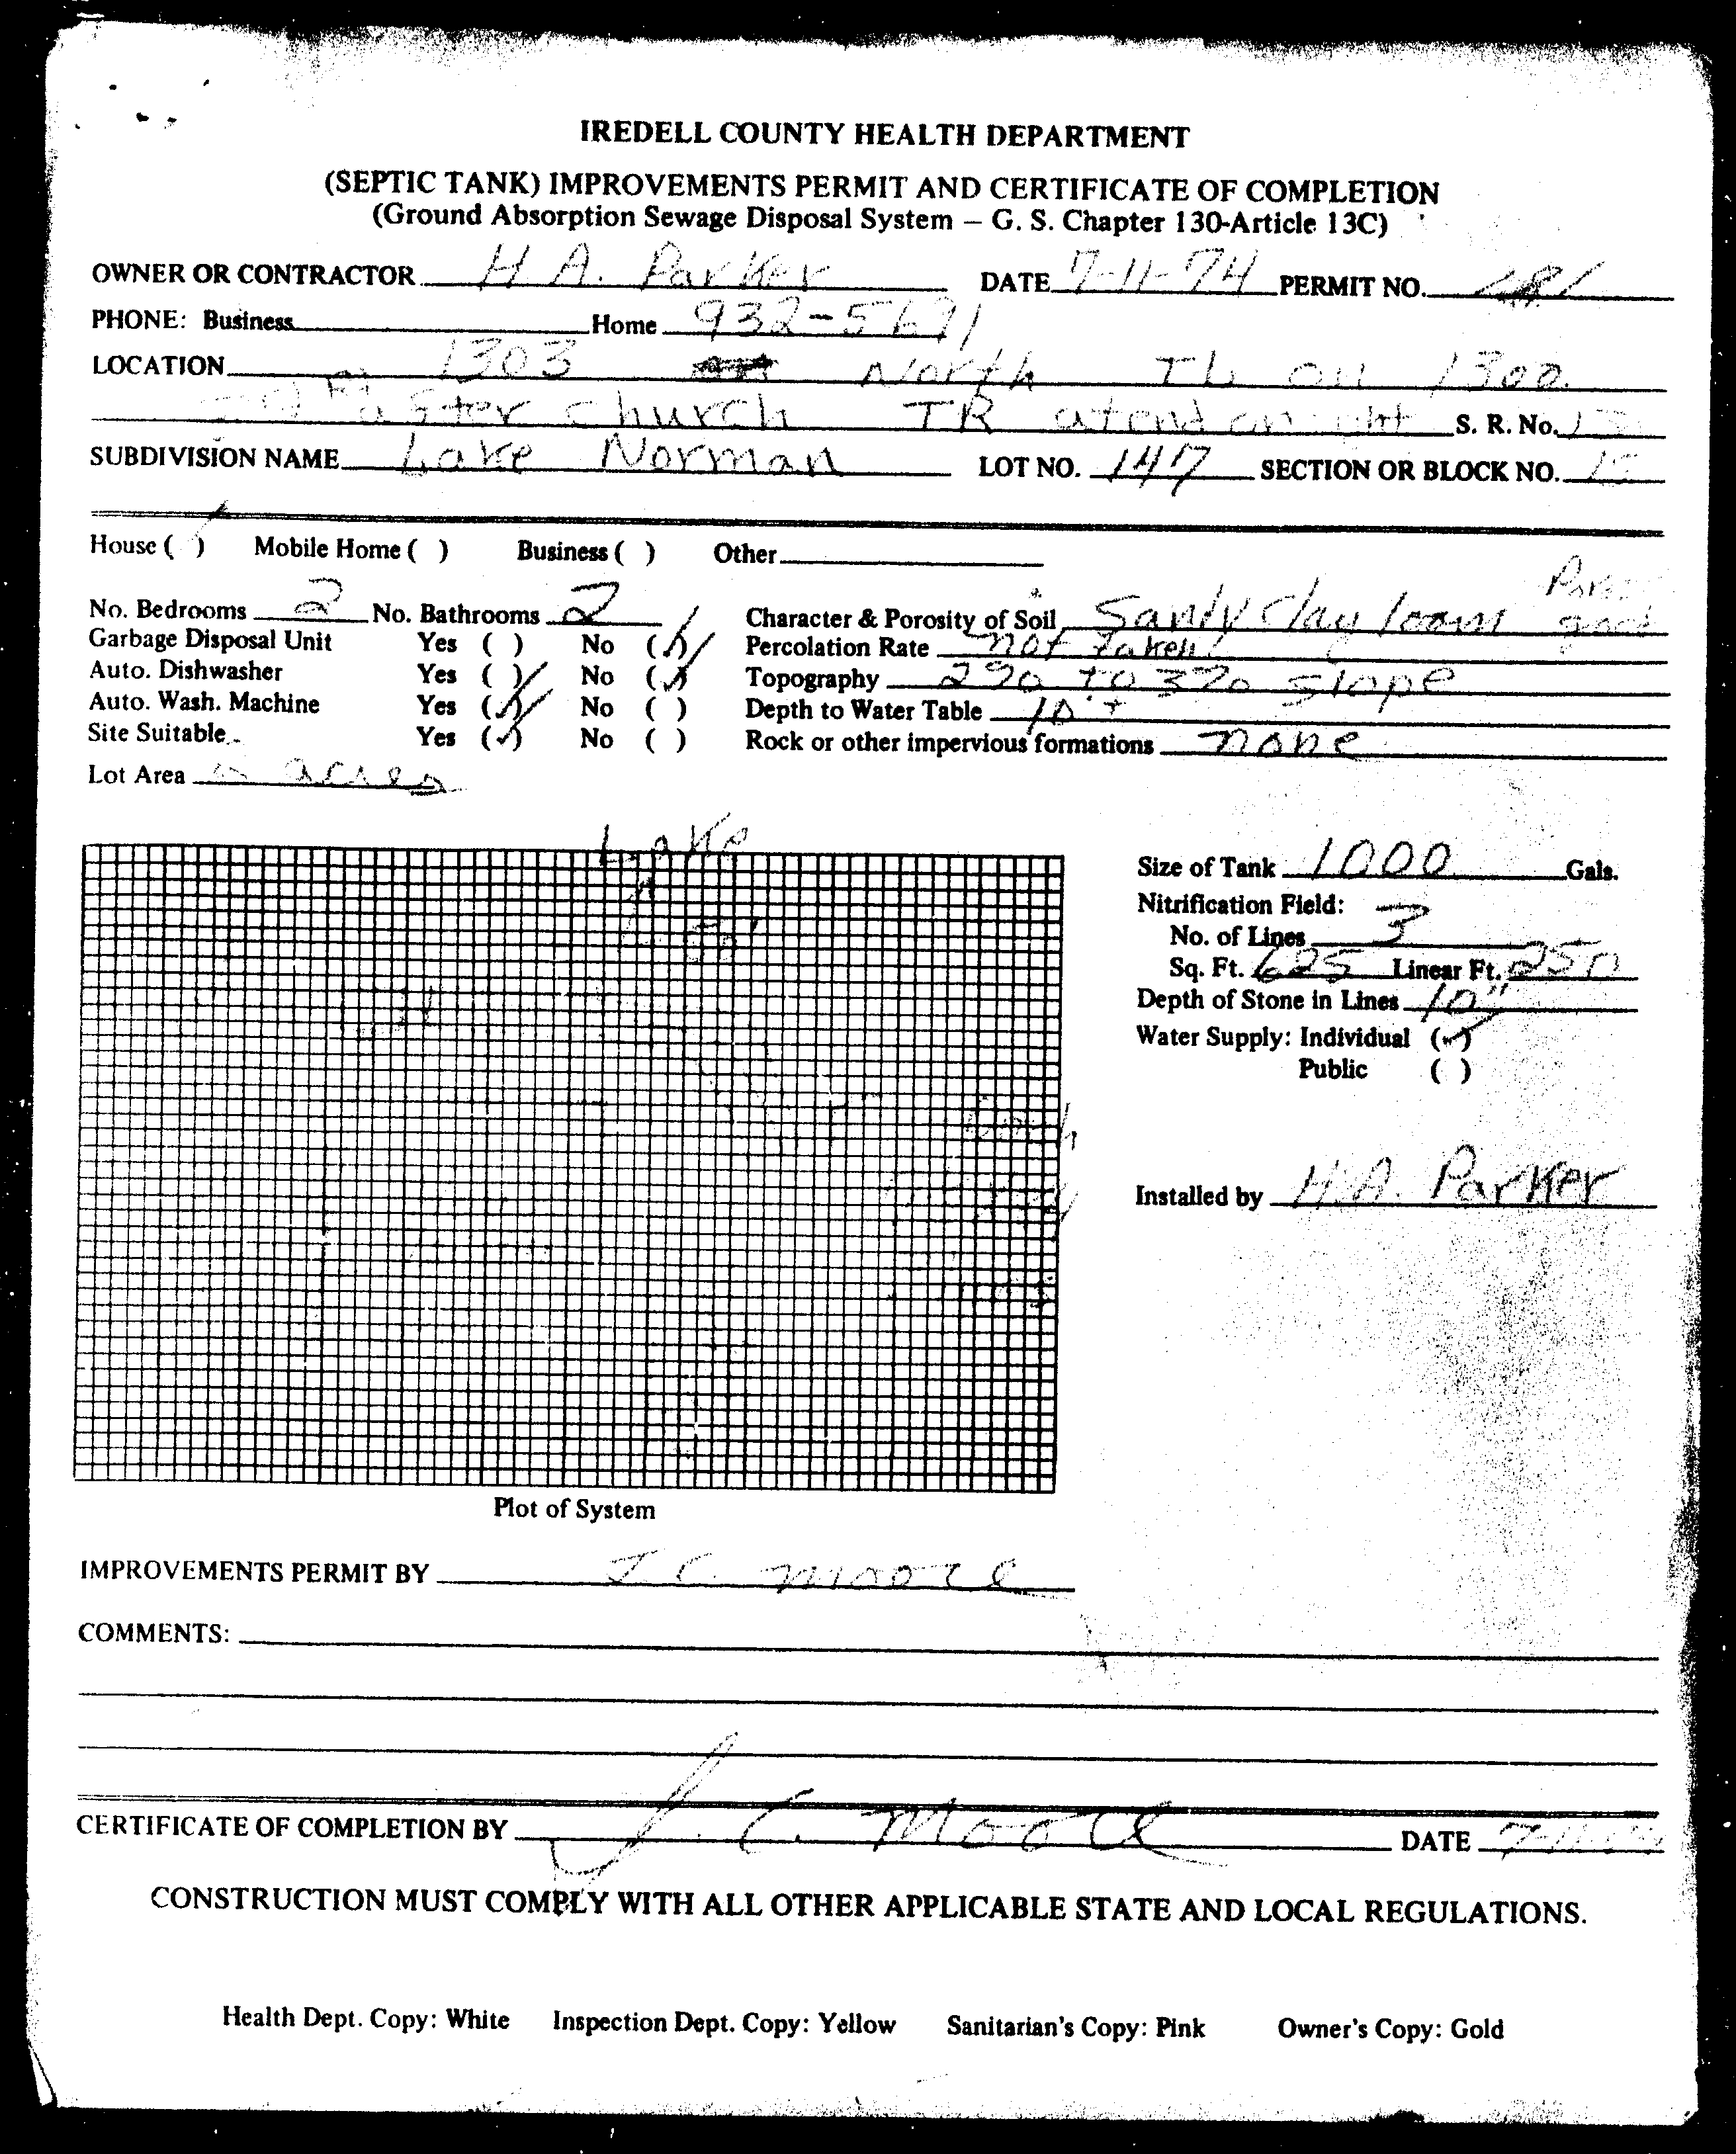 IREDELL COUNTY HEALTH DEPARTMENT
(SEPTIC TANK) IMPROVEMENTS PERMIT AND CERTIFICATE OF COMPLETION
(Ground Absorption Sewage Disposal System – G. S. Chapter 130-Article 13C)
OWNER OR CONTRACTOR H A. Parker DATE 7-11-74 PERMIT NO. 181
PHONE: Business Home 932-5691
LOCATION 1303 North TL on 1302
after church TR at end on right S. R. No.
SUBDIVISION NAME Lake Norman LOT NO. 147 SECTION OR BLOCK NO.
House ( ) Mobile Home ( ) Business ( ) Other
No. Bedrooms 2 No. Bathrooms 2 Character & Porosity of Soil Sandy clay loam good
Garbage Disposal Unit Yes ( ) No (✓) Percolation Rate not taken
Auto. Dishwasher Yes ( ) No (✓) Topography 2% to 3% slope
Auto. Wash. Machine Yes (✓) No ( ) Depth to Water Table 10'+
Site Suitable Yes (✓) No ( ) Rock or other impervious formations none
Lot Area acres
Lake
Size of Tank 1000 Gals.
Nitrification Field:
No. of Lines 3
Sq. Ft. 625 Linear Ft. 250
Depth of Stone in Lines 10"
Water Supply: Individual (✓)
Public ( )
Installed by H.A. Parker
Plot of System
IMPROVEMENTS PERMIT BY J. C. Moore
COMMENTS:
CERTIFICATE OF COMPLETION BY J. C. Moore DATE
CONSTRUCTION MUST COMPLY WITH ALL OTHER APPLICABLE STATE AND LOCAL REGULATIONS.
Health Dept. Copy: White Inspection Dept. Copy: Yellow Sanitarian's Copy: Pink Owner's Copy: Gold